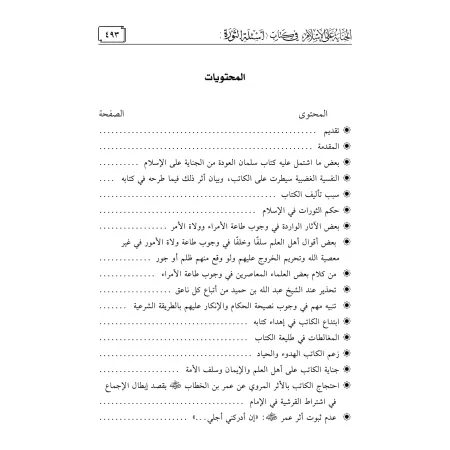 الجناية على الإسلام في كتاب (أسئلة الثورة)
٤٩٣
المحتويات
المحتوى الصفحة
◉ تقديم ........................................................
◉ المقدمة ........................................................
◉ بعض ما اشتمل عليه كتاب سلمان العودة من الجناية على الإسلام ..........
◉ النفسية الغضبية سيطرت على الكاتب، وبيان أثر ذلك فيما طرحه في كتابه ....
◉ سبب تأليف الكتاب ........................................
◉ حكم الثورات في الإسلام ....................................
◉ بعض الآثار الواردة في وجوب طاعة الأمراء وولاة الأمر ..............
◉ بعض أقوال أهل العلم سلفًا وخلفًا في وجوب طاعة ولاة الأمور في غير
معصية الله وتحريم الخروج عليهم ولو وقع منهم ظلم أو جور .............
◉ من كلام بعض العلماء المعاصرين في وجوب طاعة الأمراء ..............
◉ تحذير عند الشيخ عبد الله بن حميد من أتباع كل ناعق .................
◉ تنبيه مهم في وجوب نصيحة الحكام والإنكار عليهم بالطريقة الشرعية .......
◉ ابتداع الكاتب في إهداء كتابه ..................................
◉ المغالطات في طليعة الكتاب ..................................
◉ زعم الكاتب الهدوء والحياد ..................................
◉ جناية الكاتب على أهل العلم والإيمان وسلف الأمة ...................
◉ احتجاج الكاتب بالأثر المروي عن عمر بن الخطاب ﷺ بقصد إبطال الإجماع
في اشتراط القرشية في الإمام ..................................
◉ عدم ثبوت أثر عمر ﷺ: «إن أدركني أجلي...» ......................